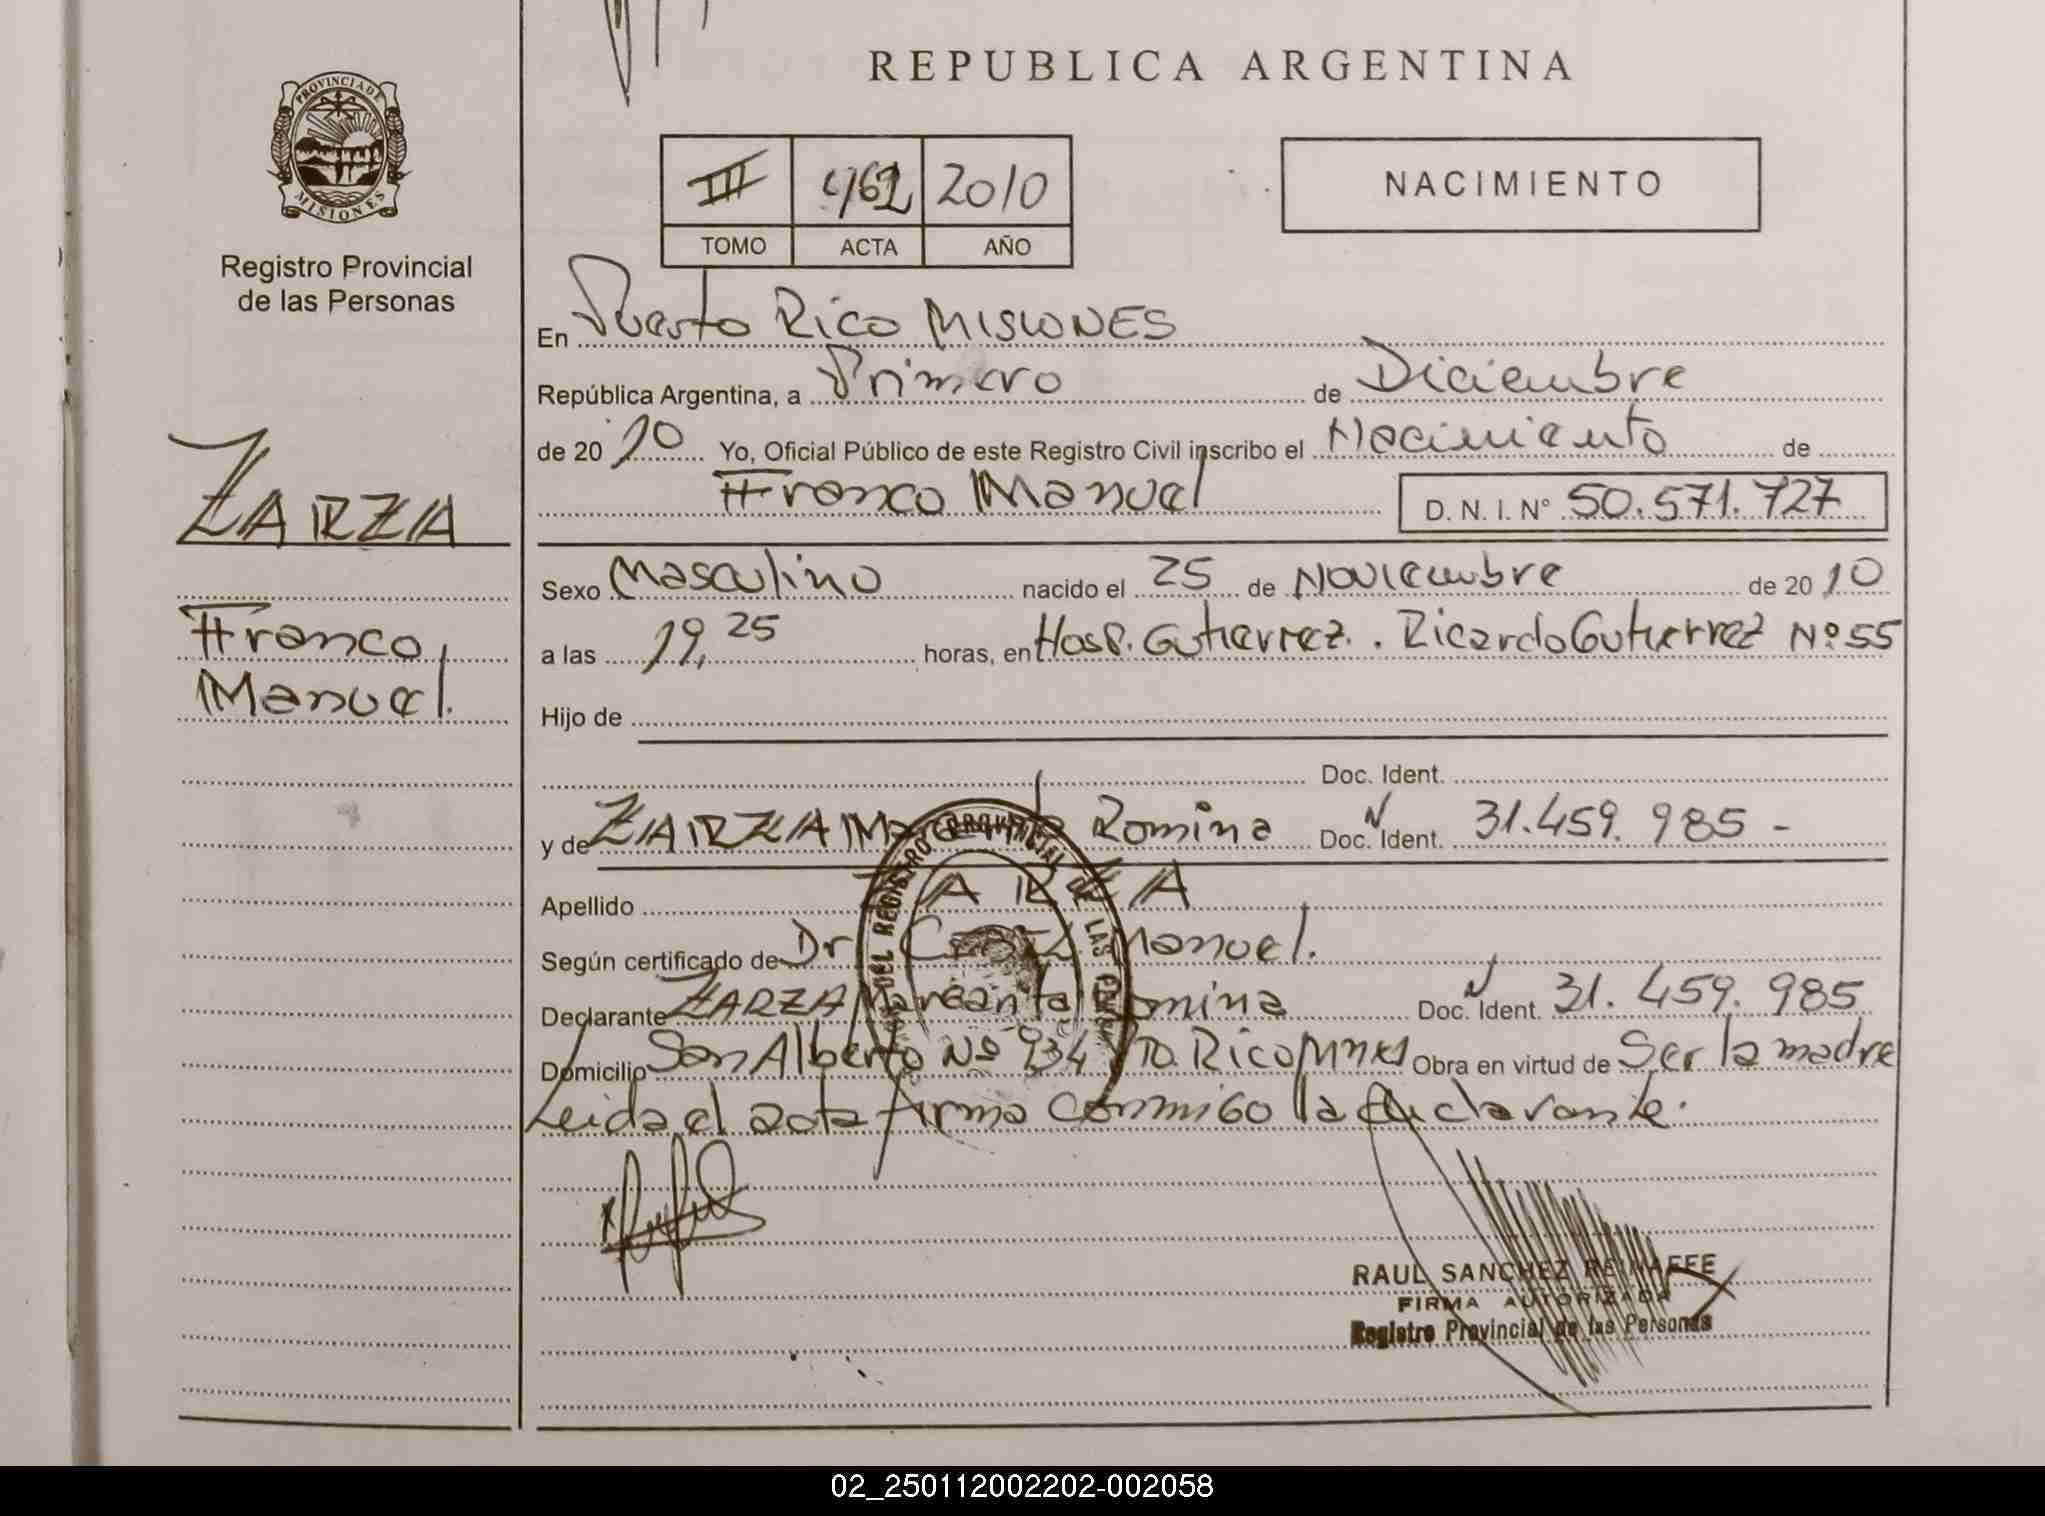 REPUBLICA ARGENTINA
PROVINCIA DE
MISIONES
Registro Provincial
de las Personas
III 462 2010
TOMO ACTA AÑO
NACIMIENTO
En Puerto Rico MISIONES
República Argentina, a Primero de Diciembre
de 20 10 Yo, Oficial Público de este Registro Civil inscribo el Nacimiento de
Franco Manuel D. N. I. Nº 50.571.727
ZARZA
Franco
Manuel.
Sexo Masculino nacido el 25 de Noviembre de 20 10
a las 19,25 horas, en Hosp. Gutierrez. . Ricardo Gutierrez Nº 55
Hijo de
Doc. Ident.
y de ZARZA Margarita Romina Doc. Ident. 31.459.985 -
Apellido ZARZA
Según certificado de Dr Manuel.
Declarante ZARZA Margarita Romina Doc. Ident. 31.459.985
Domicilio San Alberto Nº 934 PTO. Rico Mnes Obra en virtud de Ser la madre
Leida el acta firma conmigo la declarante.
DEL REGISTRO PROVINCIAL DE LAS
RAUL SANCHEZ REINAFFE
FIRMA AUTORIZADA
Registro Provincial de las Personas
02_250112002202-002058